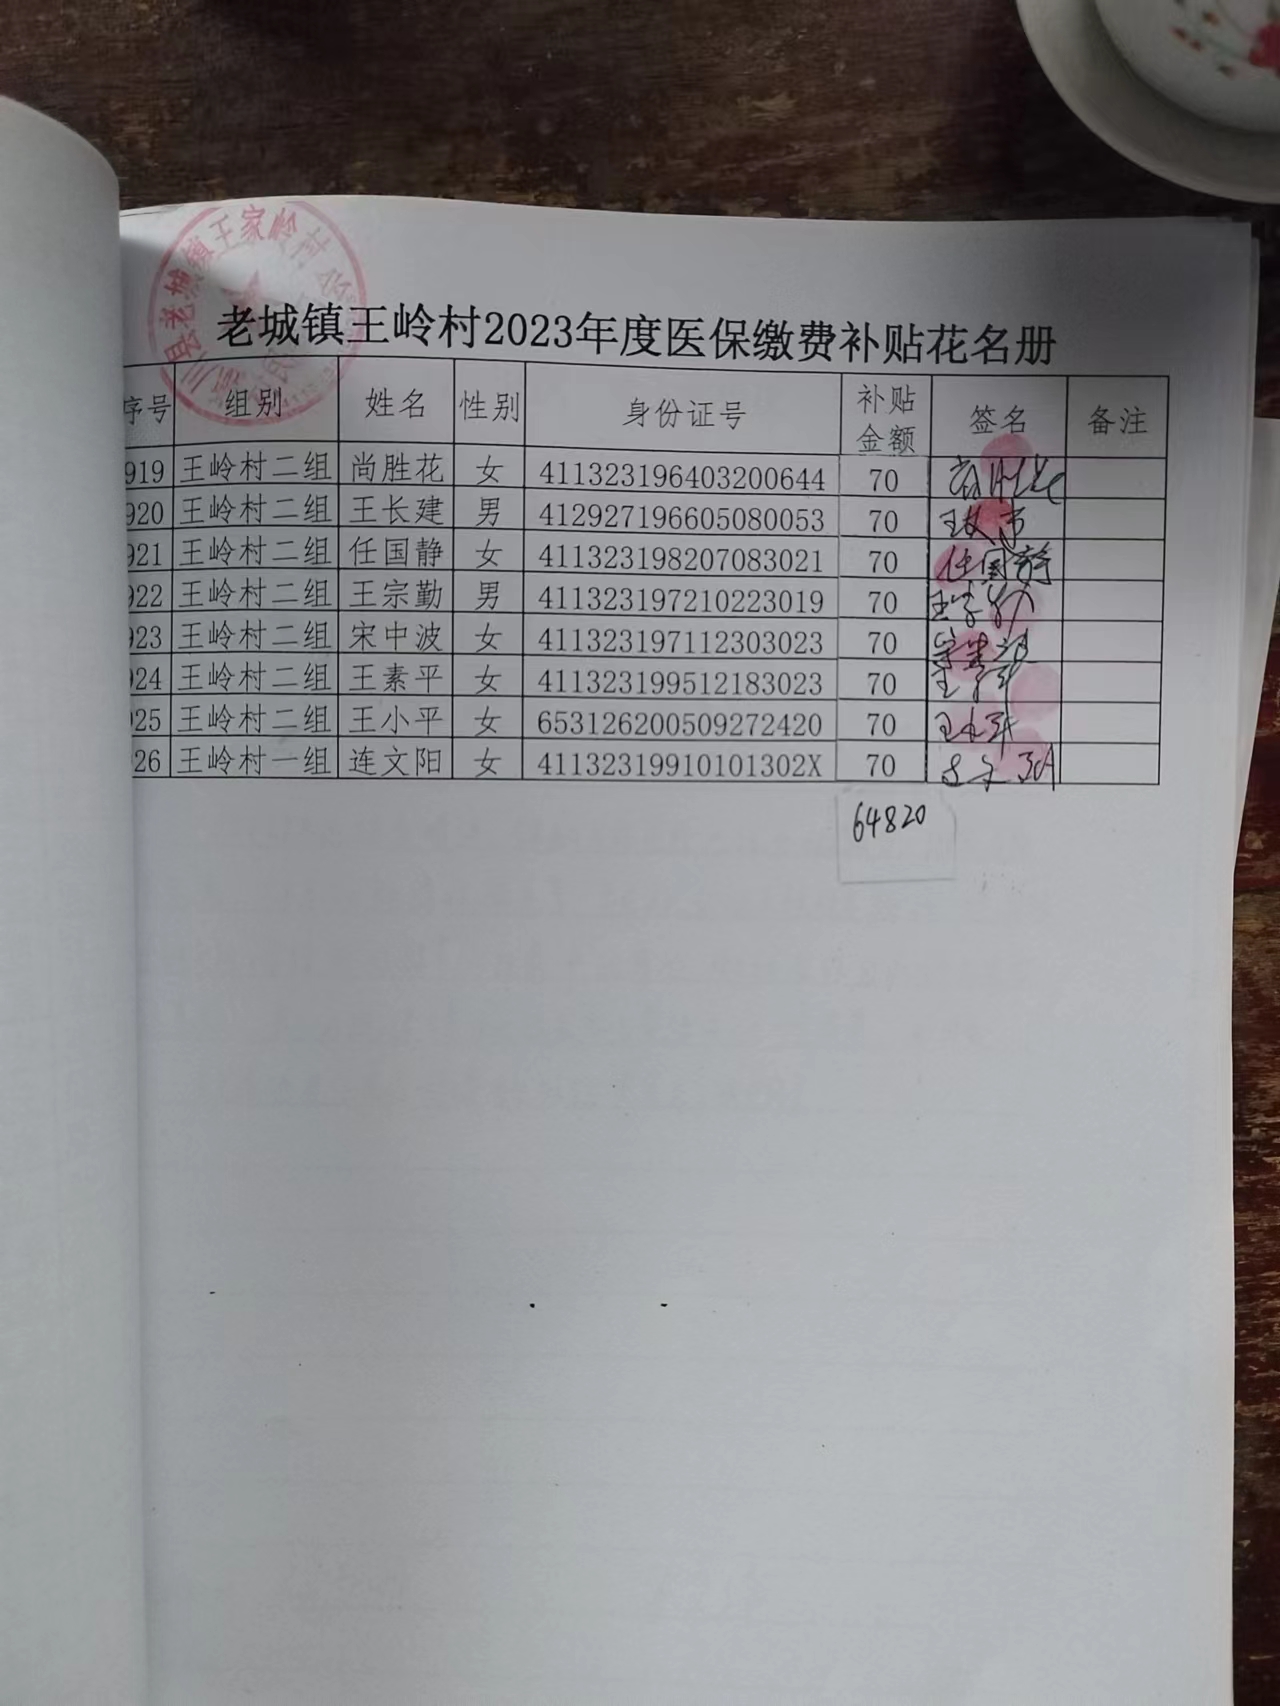 老城镇王岭村2023年度医保缴费补贴花名册
序号 组别 姓名 性别 身份证号 补贴金额 签名 备注
919 王岭村二组 尚胜花 女 411323196403200644 70
920 王岭村二组 王长建 男 412927196605080053 70
921 王岭村二组 任国静 女 411323198207083021 70 任国静
922 王岭村二组 王宗勤 男 411323197210223019 70
923 王岭村二组 宋中波 女 411323197112303023 70
924 王岭村二组 王素平 女 411323199512183023 70
925 王岭村二组 王小平 女 653126200509272420 70
26 王岭村一组 连文阳 女 41132319910101302X 70
64820